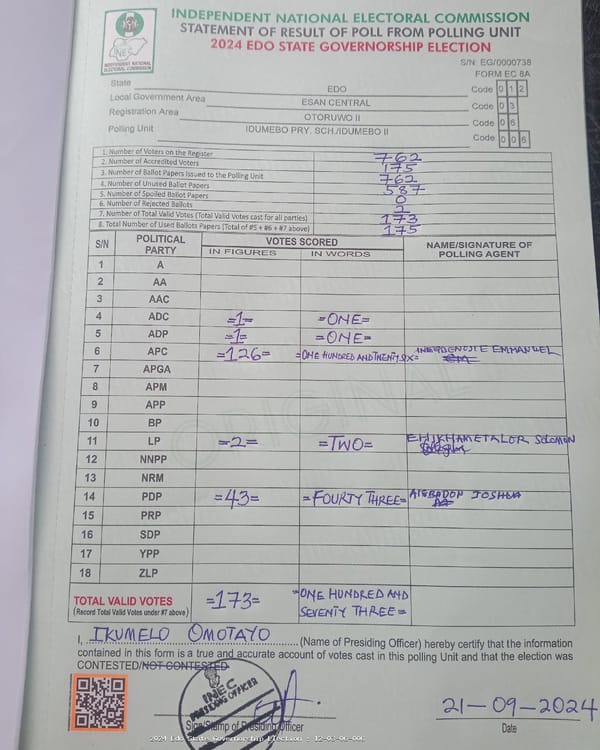 INDEPENDENT NATIONAL ELECTORAL COMMISSION
STATEMENT OF RESULT OF POLL FROM POLLING UNIT
2024 EDO STATE GOVERNORSHIP ELECTION
INEC
INDEPENDENT NATIONAL
ELECTORAL COMMISSION
S/N: EG/0000738
FORM EC 8A
State EDO Code 0 1 2
Local Government Area ESAN CENTRAL Code 0 3
Registration Area OTORUWO II Code 0 6
Polling Unit IDUMEBO PRY. SCH./IDUMEBO II Code 0 0 6
1. Number of Voters on the Register 762
2. Number of Accredited Voters 175
3. Number of Ballot Papers Issued to the Polling Unit 762
4. Number of Unused Ballot Papers 587
5. Number of Spoiled Ballot Papers 0
6. Number of Rejected Ballots 2
7. Number of Total Valid Votes (Total Valid Votes cast for all parties) 173
8. Total Number of Used Ballots Papers (Total of #5 + #6 + #7 above) 175
S/N POLITICAL PARTY VOTES SCORED NAME/SIGNATURE OF POLLING AGENT
IN FIGURES IN WORDS
1 A
2 AA
3 AAC
4 ADC =1= =ONE=
5 ADP =1= =ONE=
6 APC =126= =ONE HUNDRED AND TWENTY SIX= EMMANUEL
7 APGA
8 APM
9 APP
10 BP
11 LP =2= =TWO= EHIKHAMETALOR SOLOMON
12 NNPP
13 NRM
14 PDP =43= =FOURTY THREE= AIGBADON JOSHUA
15 PRP
16 SDP
17 YPP
18 ZLP
TOTAL VALID VOTES =173= =ONE HUNDRED AND
(Record Total Valid Votes under #7 above) SEVENTY THREE=
ORIGINAL
I, IKUMELO OMOTAYO (Name of Presiding Officer) hereby certify that the information
contained in this form is a true and accurate account of votes cast in this polling Unit and that the election was
CONTESTED/NOT CONTESTED
INEC
PRESIDING OFFICER
Sign/Stamp of Presiding Officer
21-09-2024
Date
2024 Edo State Governorship Election - 12-03-06-006